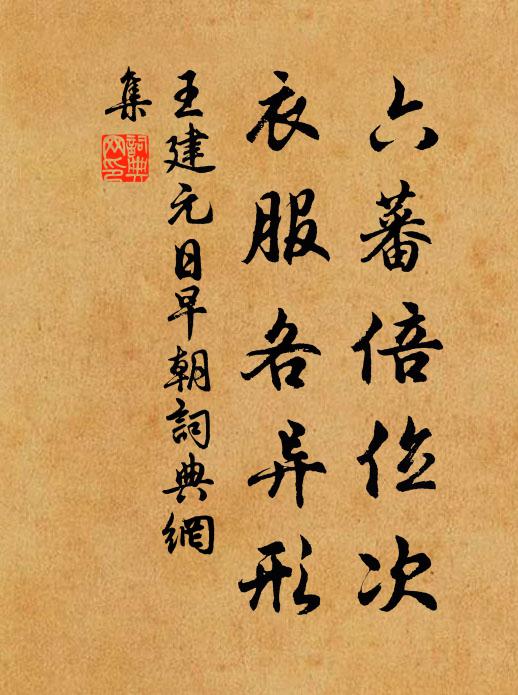 六蕃倍位次
衣服各异形
王建元日早朝詞典網
集
詞典
网印